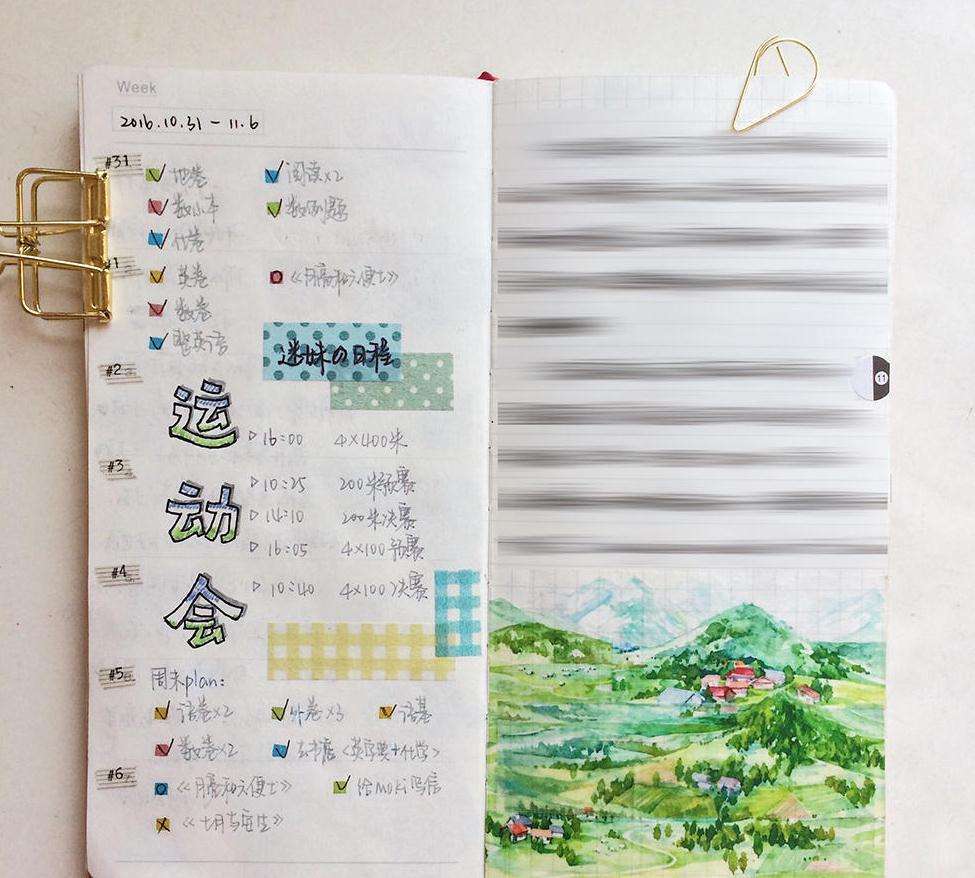 Week
2016.10.31 - 11.6
#31
地卷 阅读x2
数小本 数例题
化卷
#1
英卷 《月亮和六便士》
数卷
英语
迷妹の日程
#2
运
16:00 4×400米
#3
动
10:25 200米预赛
14:10 200米决赛
16:05 4×100预赛
#4
会
10:40 4×100决赛
#5 周末plan:
语卷x2 外卷x3 语基
数卷x2 去书店<英字典+化学>
#6
《月亮和六便士》 给moki写信
《七月与安生》
11